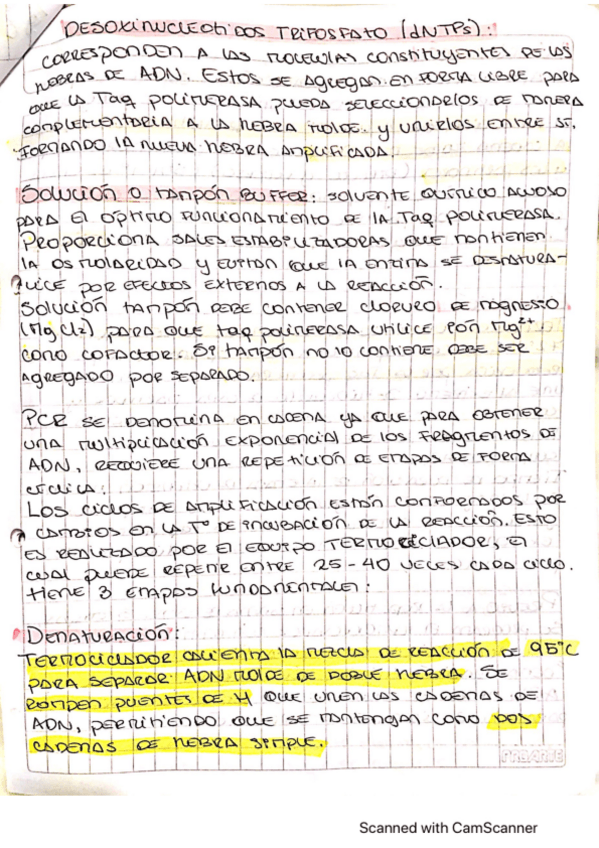 DESOXINUCLEOTIDOS TRIFOSFATO (dNTPs):
CORRESPONDEN A LAS MOLECULAS CONSTITUYENTES DE LAS
HEBRAS DE ADN. ESTOS SE AGREGAN EN FORMA LIBRE PARA
QUE LA TAQ POLIMERASA PUEDA SELECCIONARLOS DE MANERA
COMPLEMENTARIA A LA HEBRA MOLDE Y UNIRLOS ENTRE SI,
FORMANDO LA NUEVA HEBRA AMPLIFICADA.
SOLUCIÓN O TAMPÓN BUFFER: SOLVENTE QUIMICO ACUOSO
PARA EL OPTIMO FUNCIONAMIENTO DE LA TAQ POLIMERASA.
PROPORCIONA SALES ESTABILIZADORAS QUE MANTIENEN
LA OSMOLARIDAD Y EVITAN QUE LA ENZIMA SE DESNATURA-
LICE POR EFECTOS EXTERNOS A LA REACCIÓN.
SOLUCIÓN TAMPÓN DEBE CONTENER CLORURO DE MAGNESIO
(Mg Cl2) PARA QUE TAQ POLIMERASA UTILICE ION Mg2+
COMO COFACTOR. SI TAMPÓN NO LO CONTIENE DEBE SER
AGREGADO POR SEPARADO.
PCR SE DENOMINA EN CADENA YA QUE PARA OBTENER
UNA MULTIPLICACIÓN EXPONENCIAL DE LOS FRAGMENTOS DE
ADN, REQUIERE UNA REPETICIÓN DE ETAPAS DE FORMA
CICLICA.
LOS CICLOS DE AMPLIFICACIÓN ESTÁN CONFORMADOS POR
CAMBIOS EN LA T° DE INCUBACIÓN DE LA REACCIÓN. ESTO
ES REALIZADO POR EL EQUIPO TERMOCICLADOR, EL
CUAL PUEDE REPETIR ENTRE 25-40 VECES CADA CICLO.
TIENE 3 ETAPAS FUNDAMENTALES:
DENATURACIÓN:
TERMOCICLADOR CALIENTA LA MEZCLA DE REACCIÓN DE 95°C
PARA SEPARAR ADN MOLDE DE DOBLE HEBRA. SE
ROMPEN PUENTES DE H QUE UNEN LAS CADENAS DE
ADN, PERMITIENDO QUE SE MANTENGAN COMO DOS
CADENAS DE HEBRA SIMPLE.
Scanned with CamScanner